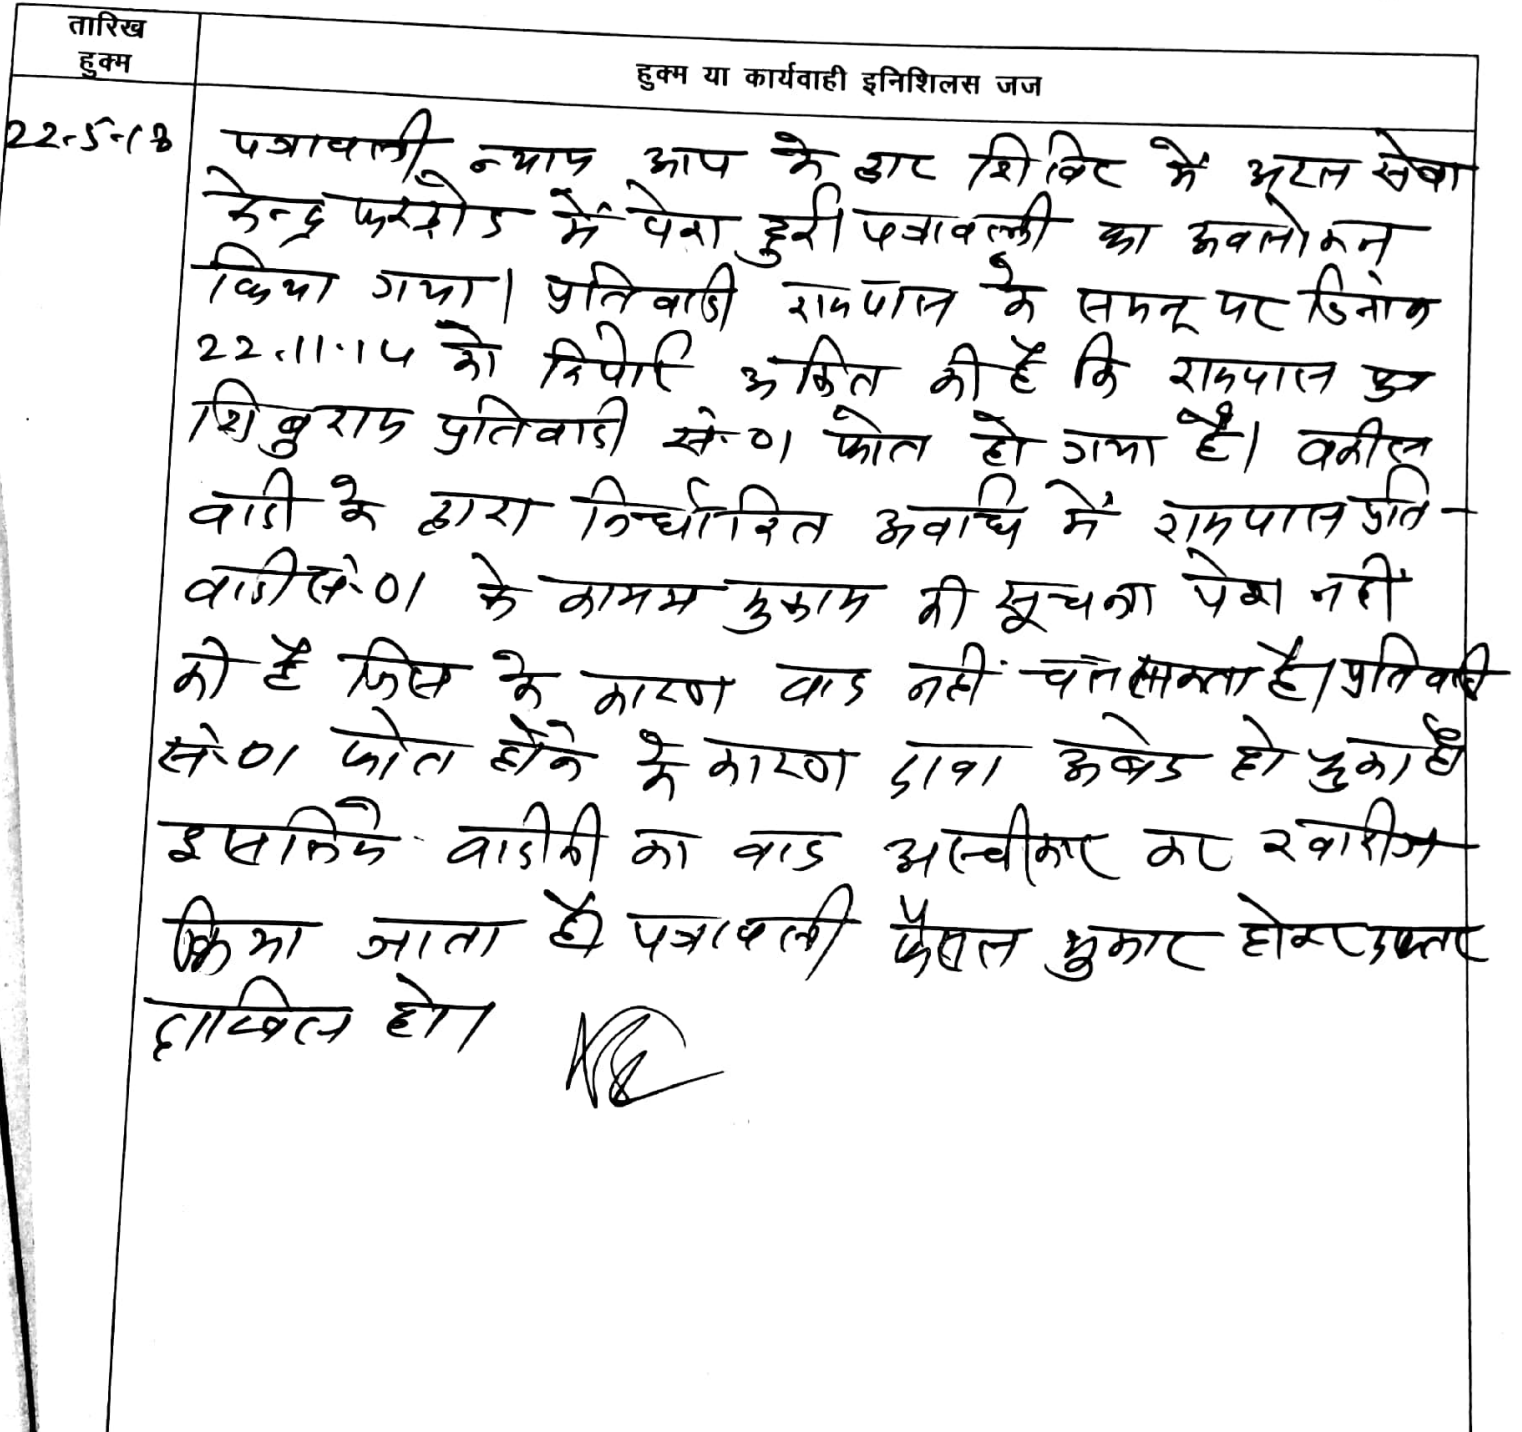 तारिख
हुक्म
हुक्म या कार्यवाही इनिशिलस जज
22-5-18 पत्रावली न्याय आप के द्वार शिविर में अटल सेवा
केन्द्र में पेश हुई। पत्रावली का अवलोकन
किया गया। प्रतिवादी रामपाल के समन पर दिनांक
22.11.14 को रिपोर्ट अंकित की है कि रामपाल पुत्र
प्रतिवादी सं.01 फोत हो गया है। वकील
वादी के द्वारा निर्धारित अवधि में रामपाल प्रति-
वादी सं.01 के कायम मुकाम की सूचना पेश नहीं
की है जिस के कारण वाद नहीं चल सकता है। प्रतिवादी
सं.01 फोत होने के कारण दावा अबेट हो चुका है
इसलिये वादीनी का वाद अस्वीकार कर खारीज
किया जाता है। पत्रावली फैसल शुमार होकर दफ्तर
दाखिल हो।